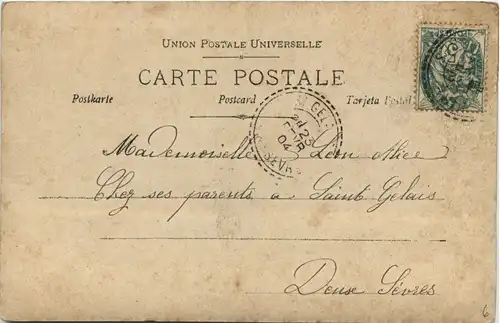 UNION POSTALE UNIVERSELLE
CARTE POSTALE
Postkarte Postcard Tarjeta Postal
ST GELAIS
23
FEVR
04
SEVRES
Mademoiselle Léon Alice
Chez ses parents a Saint Gelais
Deux Sèvres
6